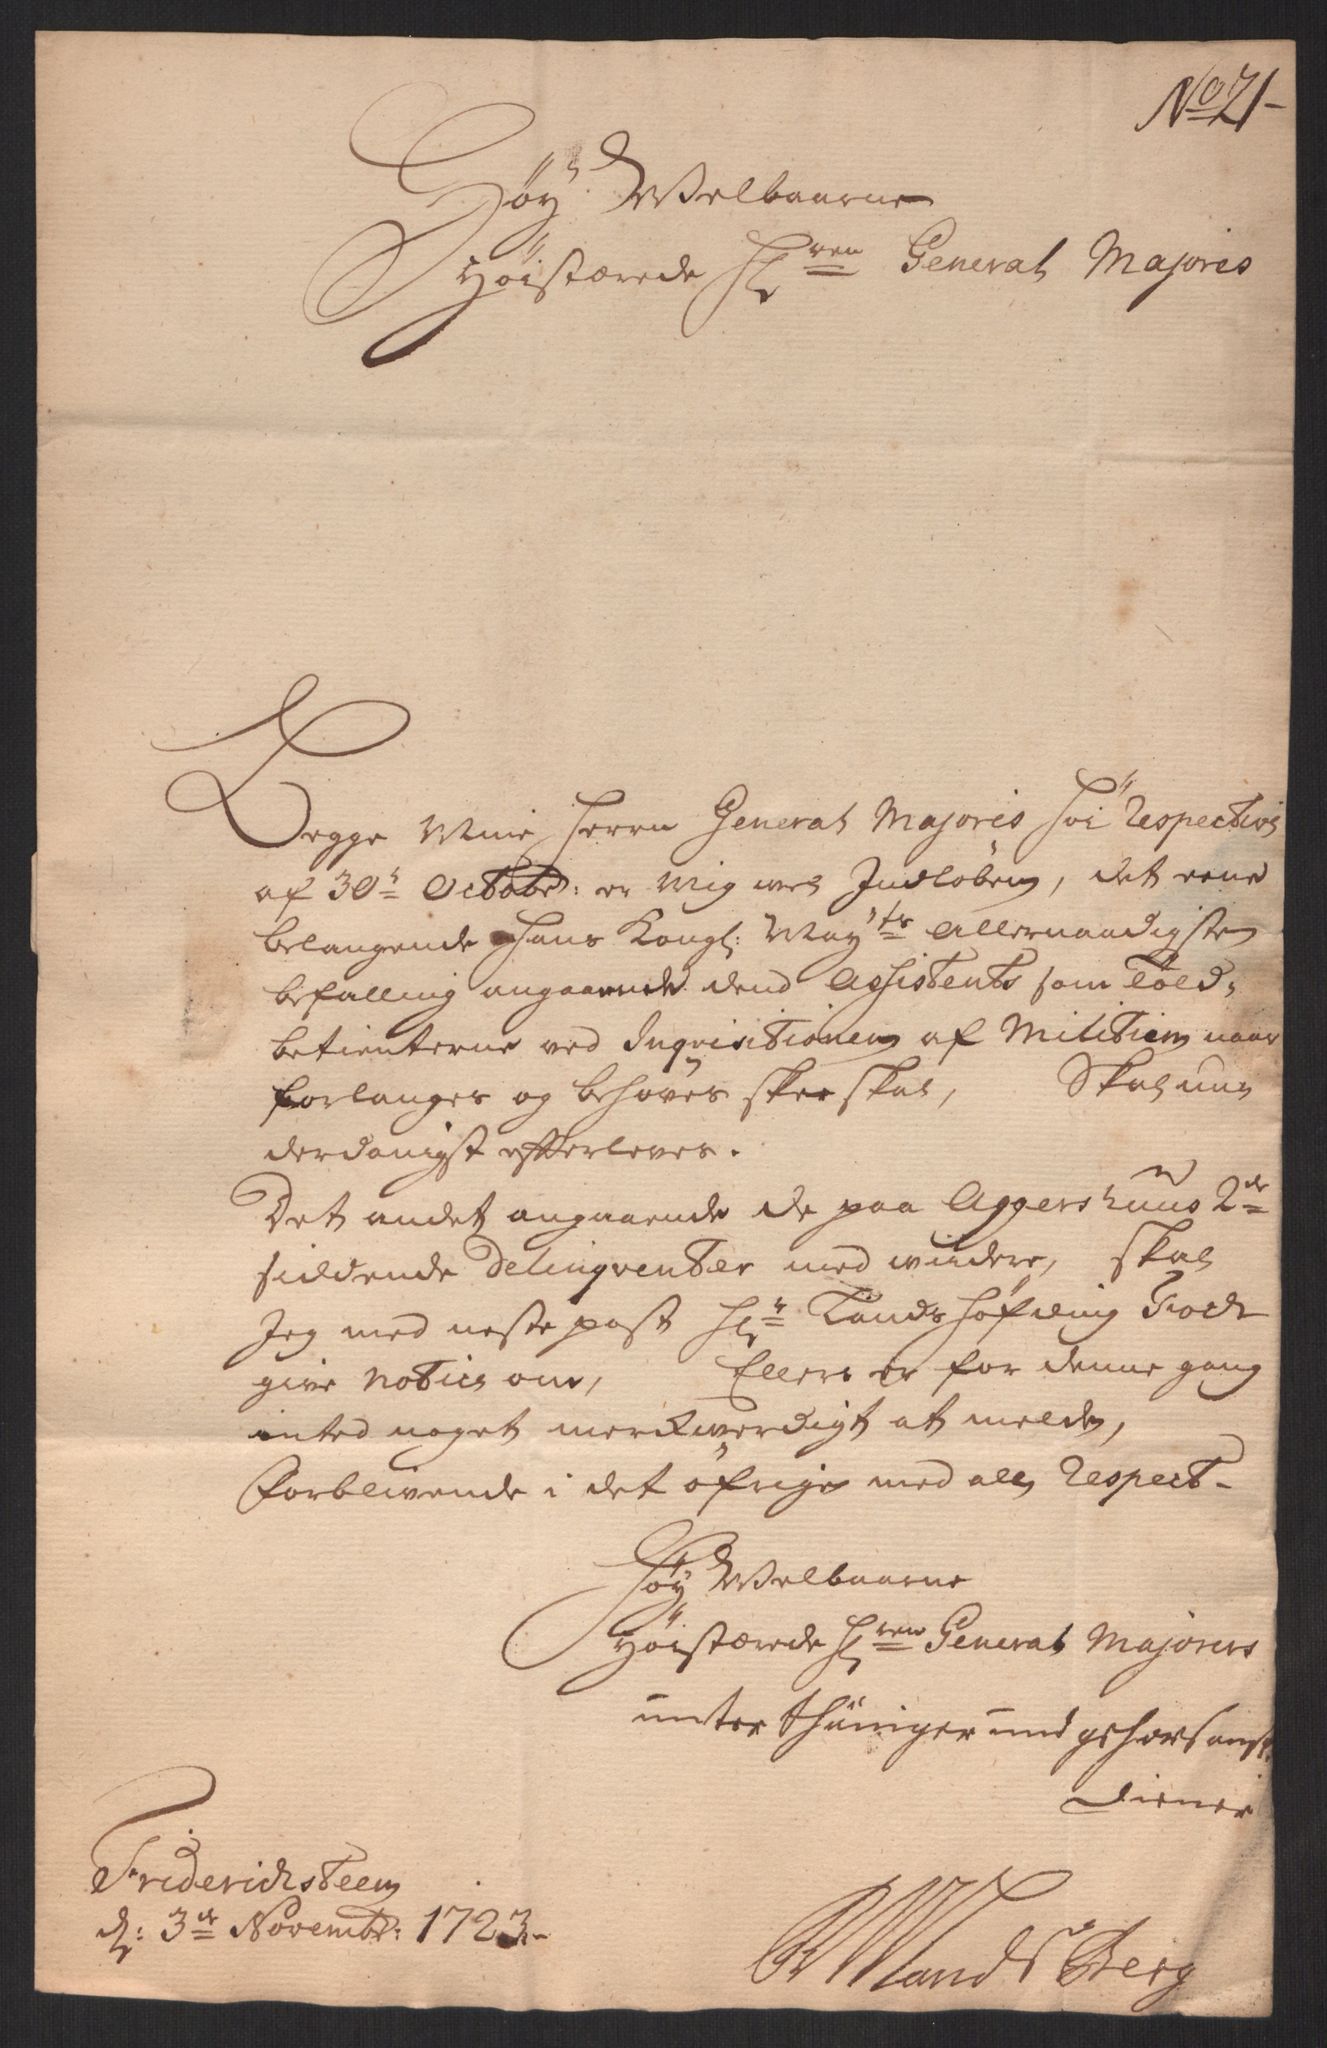 No 21-
Høy Welbaarne
Høistærede Hr ren General Majoris
Begge Minn Herrn General Majoris høi Respective
af 30te Octobr: er mig vel Indløben, det eene
belangende Hans Kongl: May ts Allernaadigste
befalling angaaende dend Assistents som Told,
betienterne ved Inqvisitionen af Militien naar
forlanges og behøves skee skal, Skal un
derdanigst efterleves.
Det andet angaaende de paa Aggershuus 2de
siddende Delinqventer med videre, skal
Jeg med neste post Hr Landshøfding
give notice om, Ellers er for denne gang
inted noget merckwerdigt at melde,
Forblivende i det øfrige med all Respect-
Høy Welbaarne
Høistærede Hr ren General Majorers
unterthäniger und gehorsamst.
Diener
Friderichsteen
d: 3de Novembr: 1723.-
LandsBerg